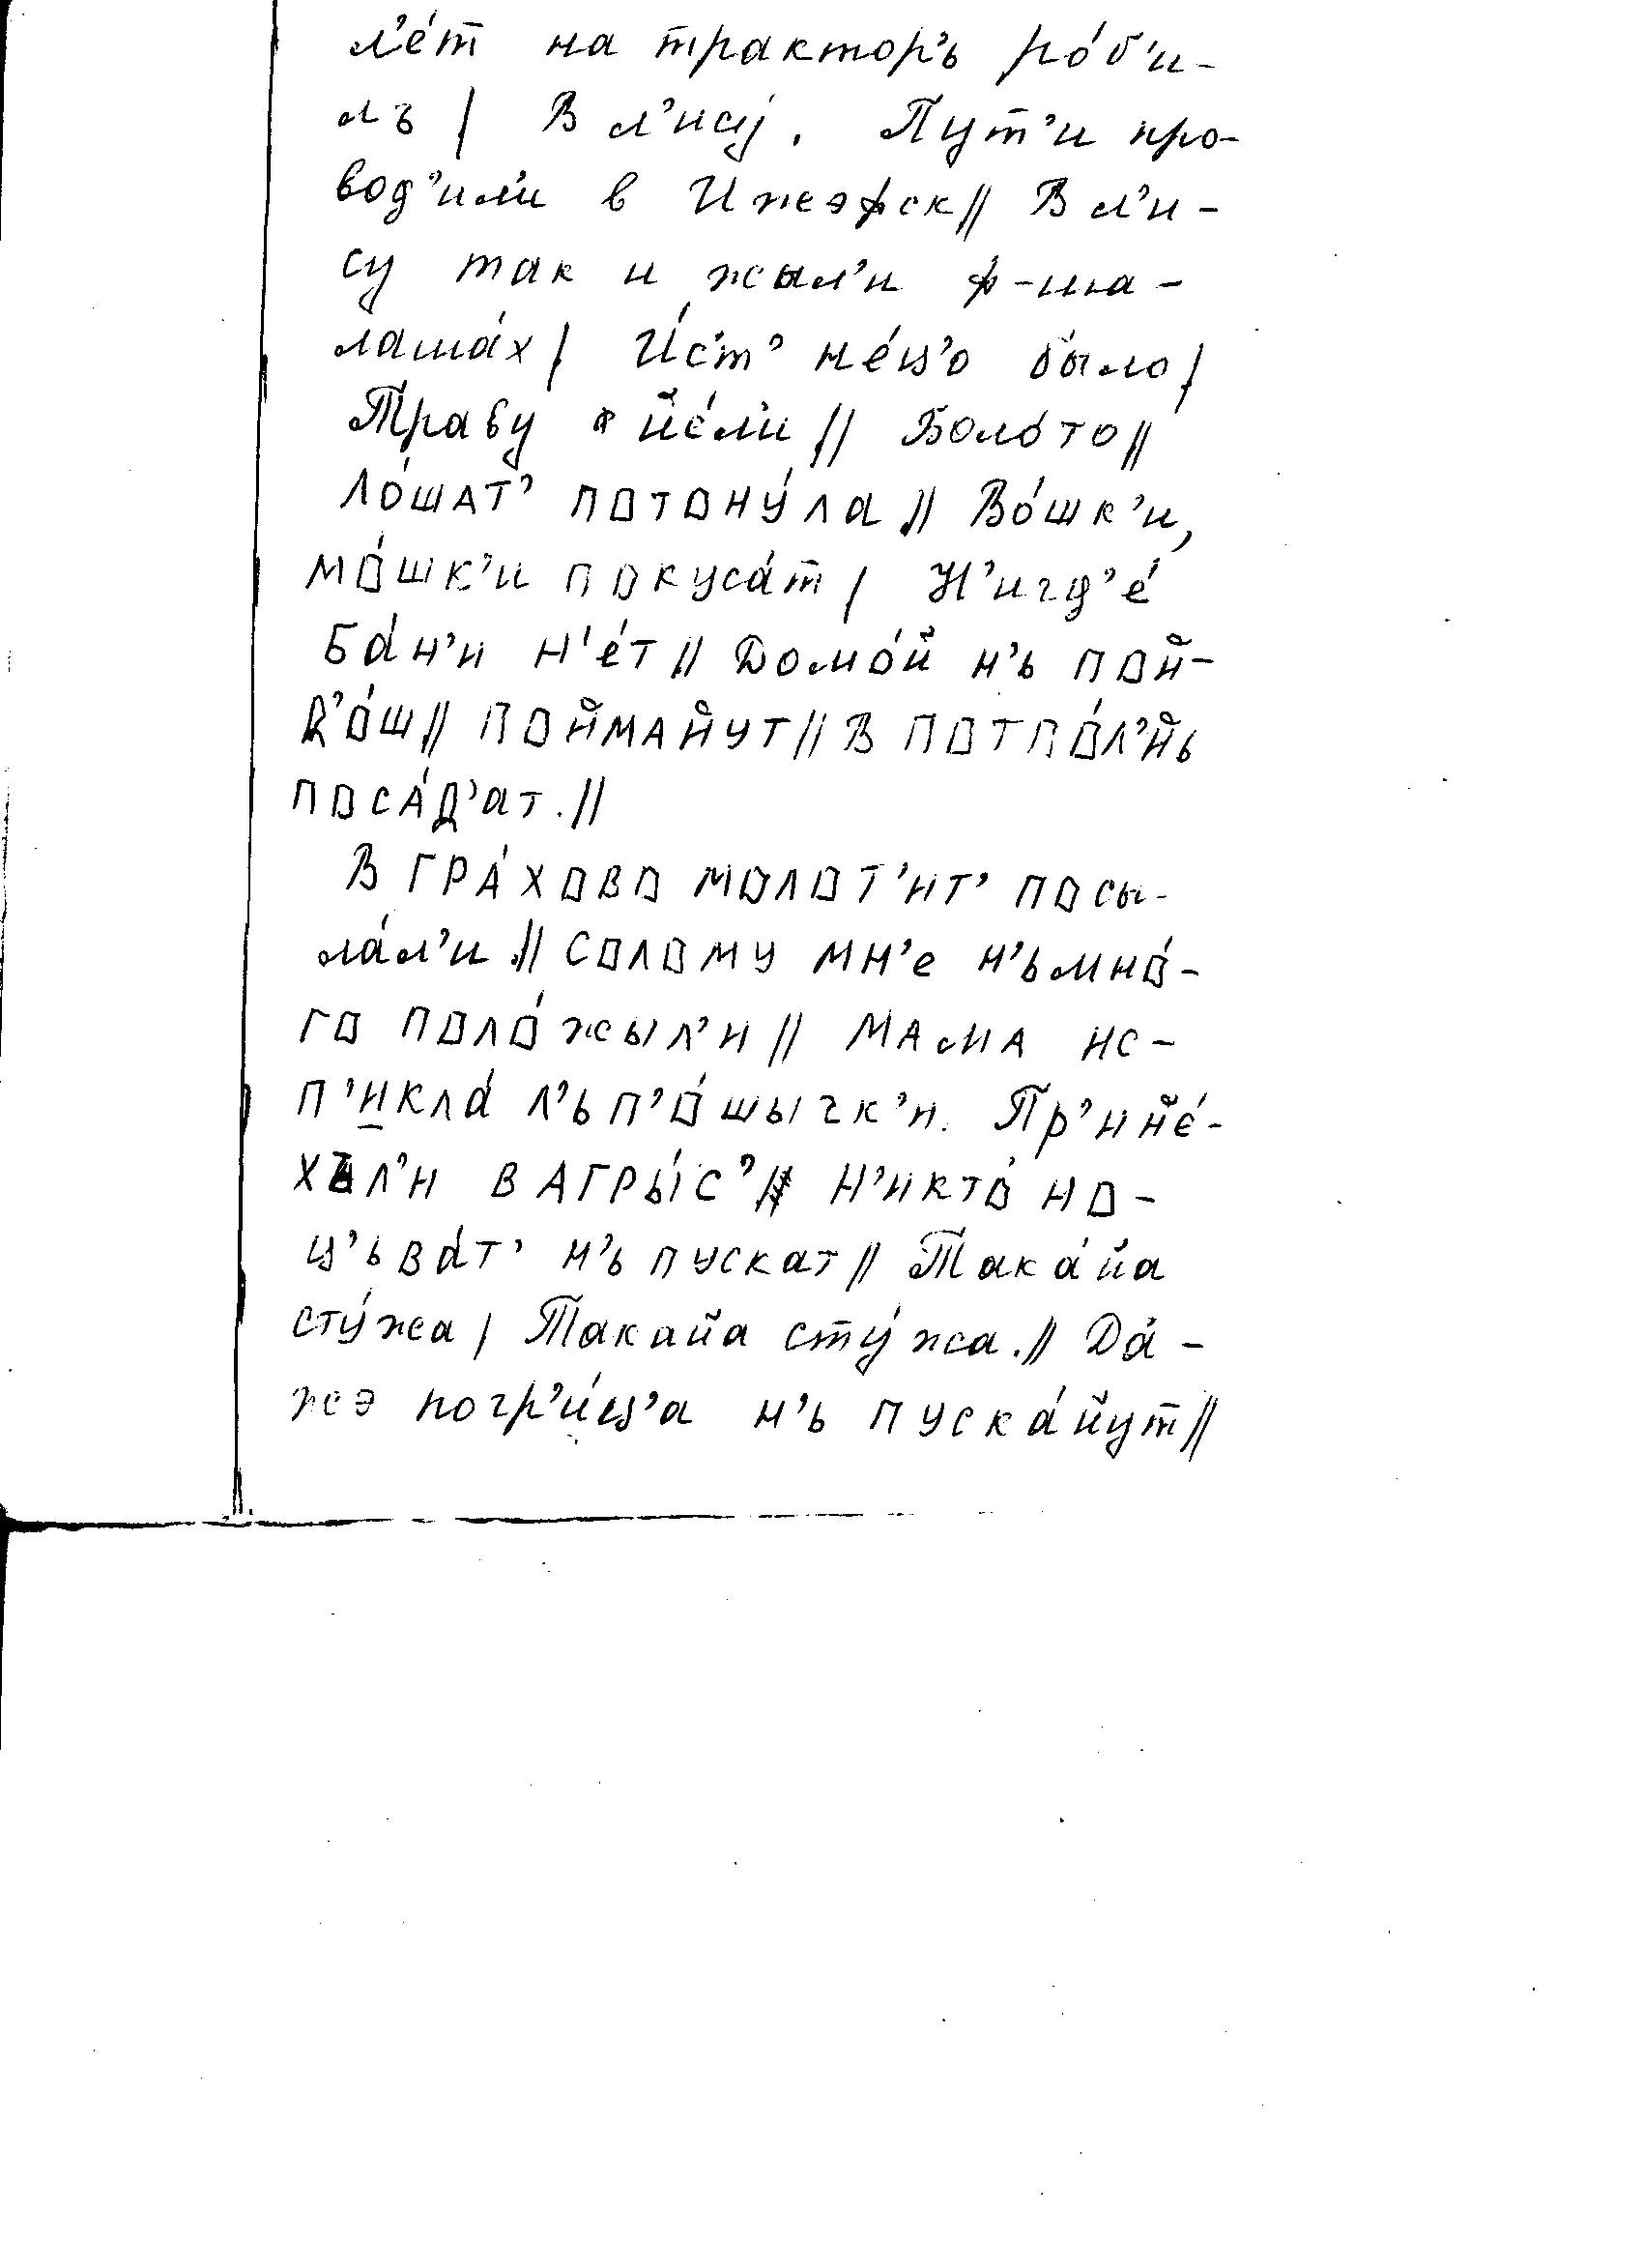 л'éт на трактор'ь рóб'и-
лъ / В л'ису́. Пут'и про-
вод'или в Ижэфск // В л'и-
су так и жыл'и ф-ша-
лашáх / И́ст' нéц'о было /
Траву йéли // Болóто //
Лóшат' потонýла // Вóшк'и,
мóшк'и покусáт / Н'игд'é
бáн'и н'éт // Домóй н'ь пой-
д'óш // поймайут // в потпóл'йь
посáд'ат. //
В Грáхово молот'ит' посы-
лáл'и // солому мн'е н'ьмнó-
го полóжыл'и // мама ис-
п'иклá л'ьп'óшычк'и. Пр'ийé-
хъл'и в Агры́с' // н'иктó но-
ц'ьвáт' н'ь пускат // Такáйа
стýжа / Такайа стýжа. // Дá-
жэ погр'и́ц'а н'ь пускáйут //